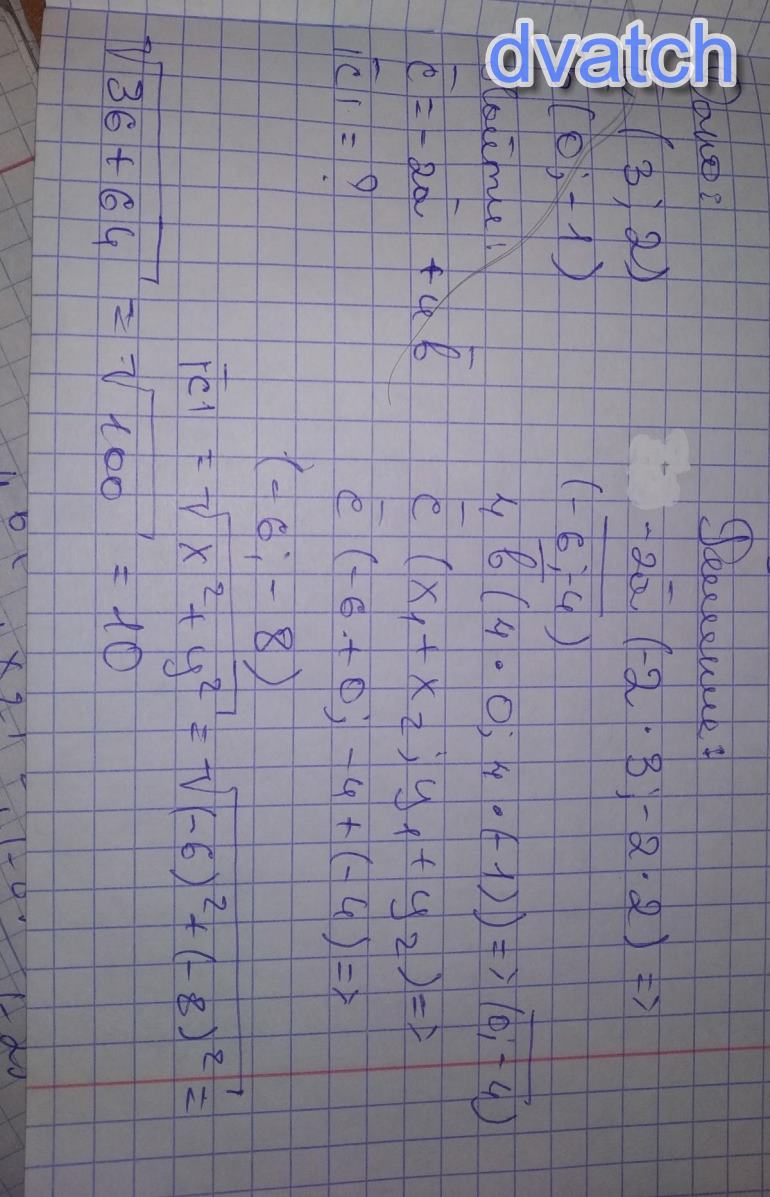 dvatch
Дано:
(3; 2)
(0; -1)
Найти:
c̄ = -2ā + 4b̄
|c̄| = ?
Решение:
-2ā (-2 · 3; -2 · 2) =>
(-6; -4)
4b̄ (4 · 0; 4 · (-1)) => (0; -4)
c̄ (x₁ + x₂; y₁ + y₂) =>
c̄ (-6 + 0; -4 + (-4) =>
(-6; -8)
|c̄| = √x² + y² = √(-6)² + (-8)² =
√36 + 64 = √100 = 10